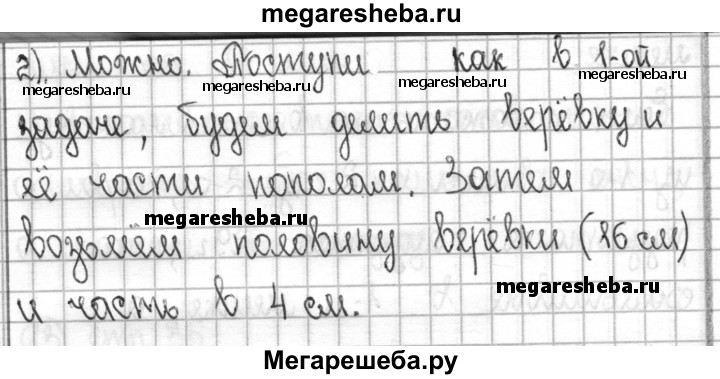 megaresheba.ru
2). Можно. Поступи как в 1-ой
megaresheba.ru megaresheba.ru megaresheba.ru
задаче, будем делить верёвку и
её части пополам. Затем
megaresheba.ru
возьмём половину верёвки (16 см)
megaresheba.ru
и часть в 4 см.
Мегарешеба.ру